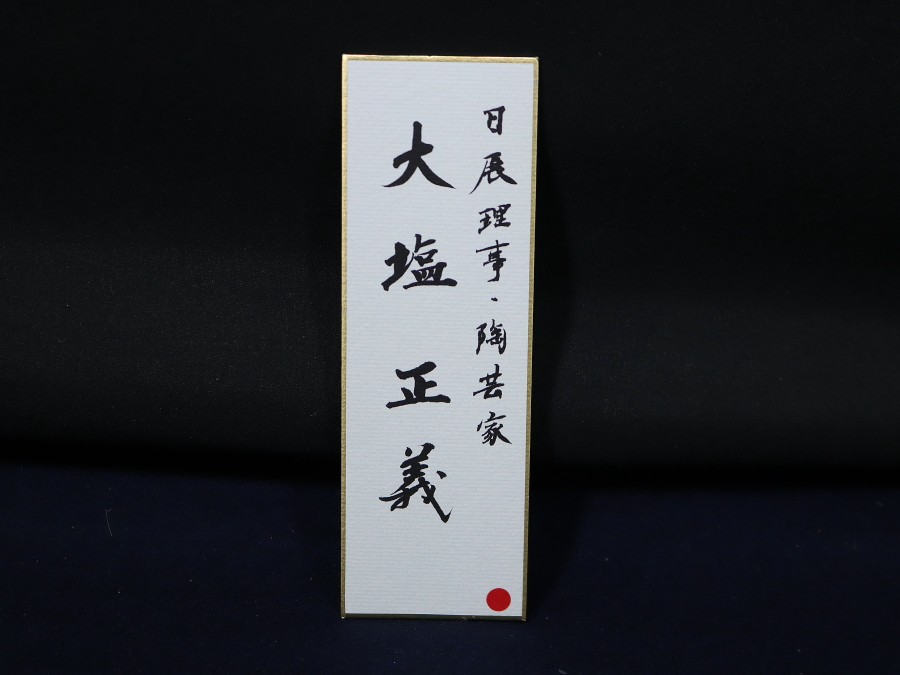 日展理事・陶芸家
大塩正義